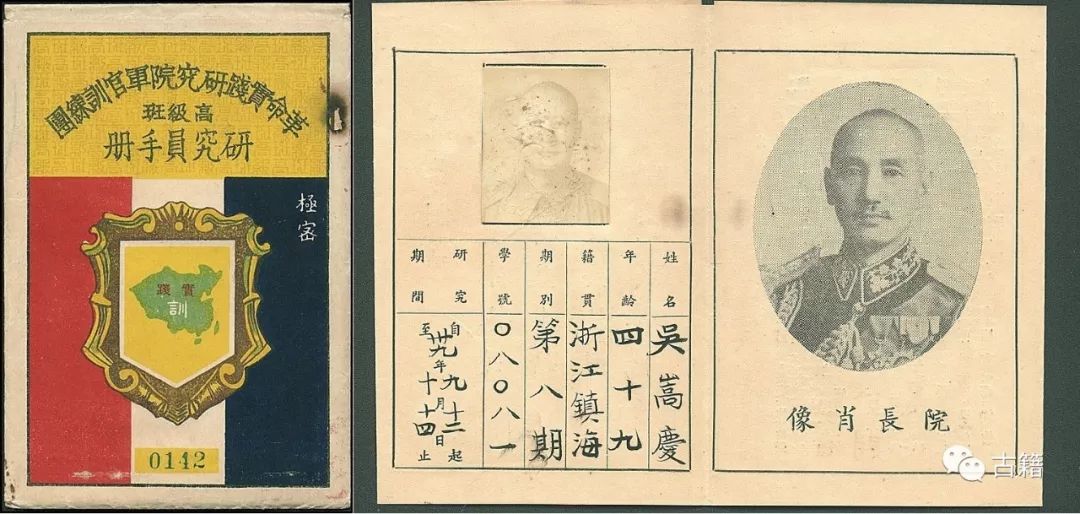 革命實踐研究院軍官訓練團
高級班
研究員手册
極密
實踐
訓
0142
姓名 吳嵩慶
年齡 四十九
籍貫 浙江鎮海
期別 第八期
學號 〇八〇八一
研究期間
自 九 十二 起
卅九年 月 日
至 十 十四 止
院長肖像
古籍